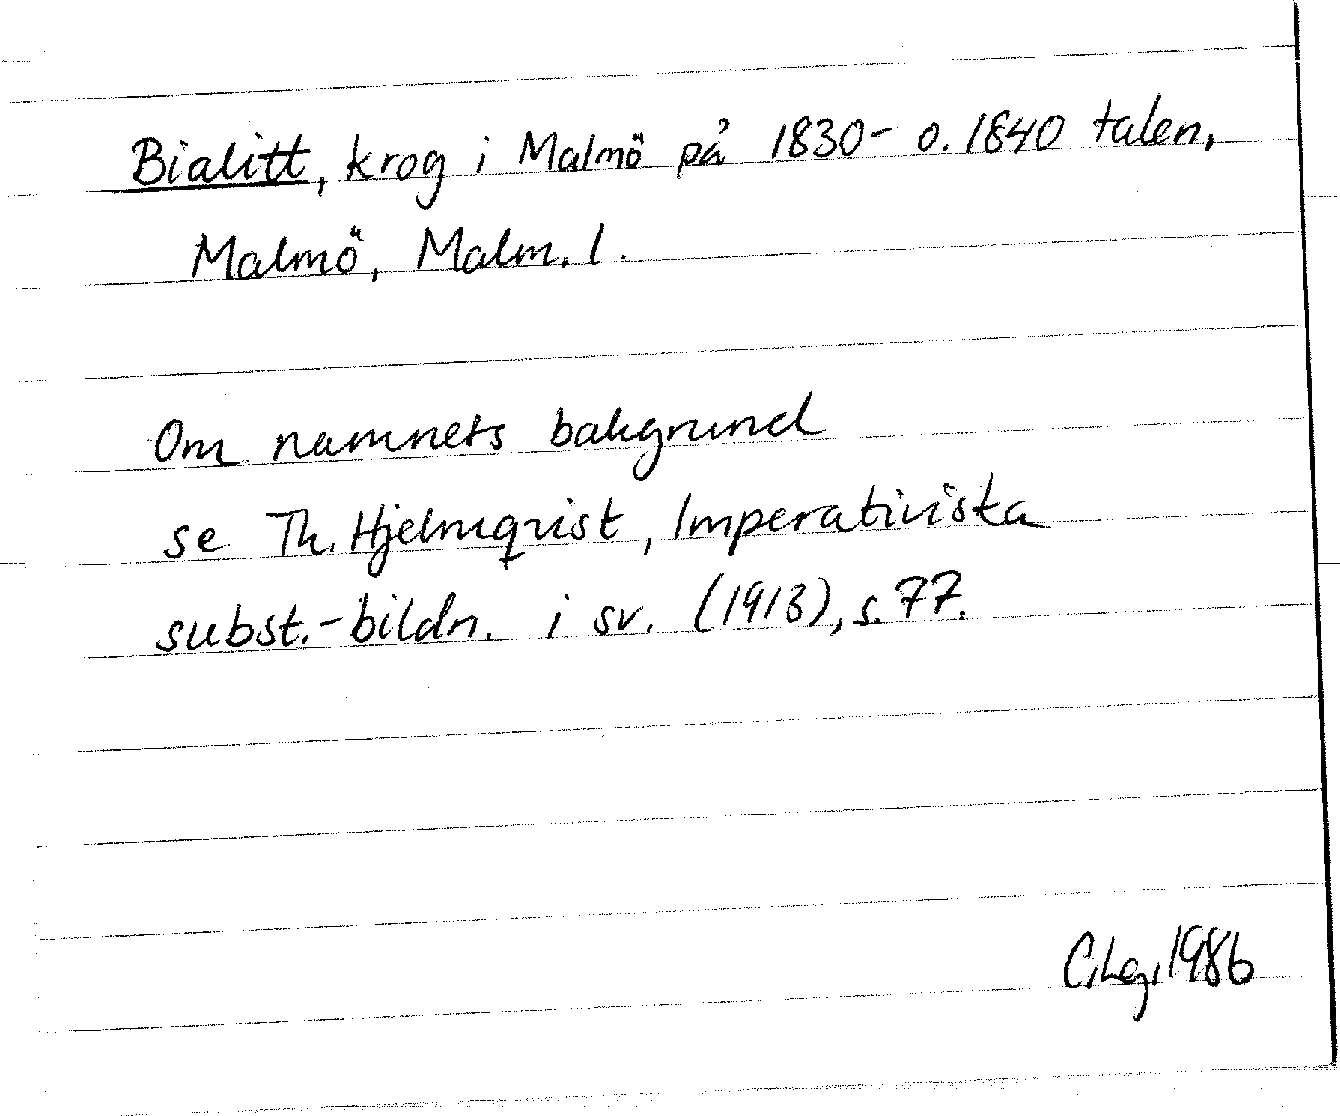 Bialitt, krog i Malmö på 1830- o. 1840 talen,
Malmö, Malm. l.
Om namnets bakgrund
se Th. Hjelmqvist, Imperativiska
subst.-bildn. i sv. (1913), s. 77.
C.Lg. 1986